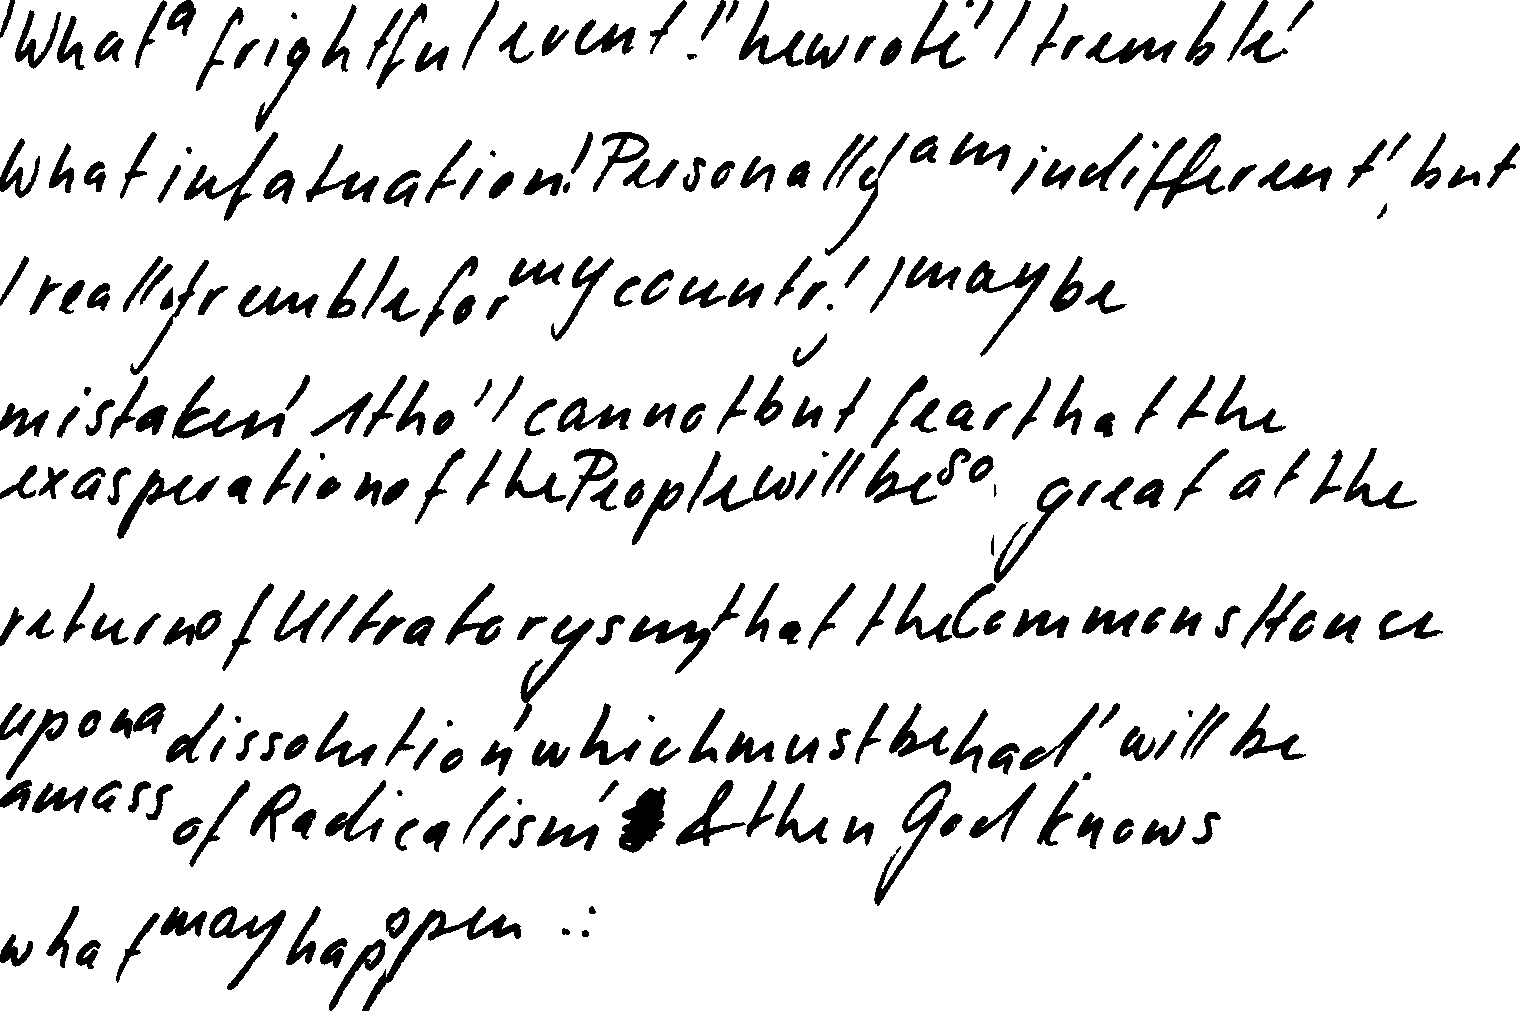 'What a frightful event!" he wrote 'I tremble!
What infatuation! Personally am indifferent', but
I really tremble for my country! I may be
mistaken' 'tho' I cannot but fear that the
exasperation of the People will be so great at the
return of Ultratorysm, that the Commons House
upon a dissolution' which must be had' will be
a mass of Radicalism' & then God knows
what may happen .: